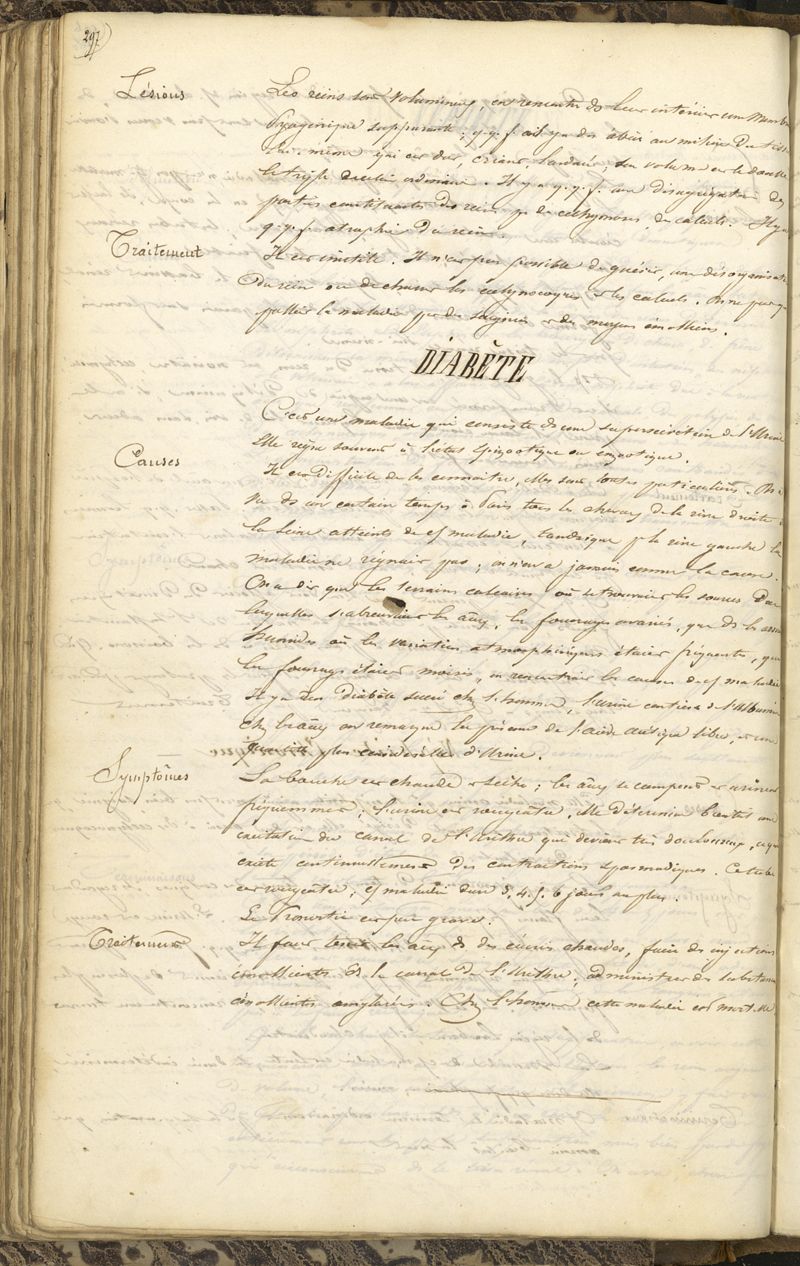 297
Lésions
Les reins sont volumineux, on rencontre ds leur intérieur une
pyogénique suppurante ; q.q.f. il y a des abcès au milieu du tissu
lui-même qui est dur, criant, lardacé, son volume est le double
le triple de celui ordinaire. Il y a q.q.f. une désagrégation des
parties constituantes des reins de calculs. Il y a
q.q.f. atrophie du rein.
Traitement
Il est inutile. Il n'est pas possible de guérir une désorganisation
du rein ou de chasser les et les calculs. On ne peut q.
pallier la maladie p. des saignées et des moyens émollients.
DIABÈTE
C'est une maladie qui consiste ds une supersécrétion de l'urine
Elle règne souvent à l'état épizootique ou enzootique.
Causes
Il est difficile de les connaître, elles sont toutes particulières. On a
vu ds un certain temps à Paris tous les chevaux de la rive droite de
la Seine atteints de maladie, tandis que la rive gauche la
maladie ne régnait pas ; on n'en a jamais connu la cause.
On a dit que les terrains calcaires où se trouvaient les sources dans
lesquelles s'abreuvaient les aux, les fourrages avariés, que ds les
humides où les variations atmosphériques étaient fréquentes, que
les fourrages étaient moisis, on rencontrait les causes de maladie
Il y a un Diabète sucré chez l'homme, l'urine contient de l'Albumine
Chez les aux on remarque la présence de l'acide libre, et une
quantité plus considérable d'urine.
Symptômes
La bouche est chaude et sèche ; les aux se campent et urinent
fréquemment ; l'urine est rougeâtre. Elle détermine bientôt une
excitation du canal de l'urèthre qui devient très douloureux,
existe continuellement des contractions spasmodiques.
est rougeâtre ; maladie dure 3, 4, 5, 6 jours au plus.
Le Pronostic est peu grave.
Traitement
Il faut tenir les aux ds des écuries chaudes, faire des injections
émollientes ds le canal de l'urèthre ; administrer des substances
émollientes Chez l'homme cette maladie est mortelle